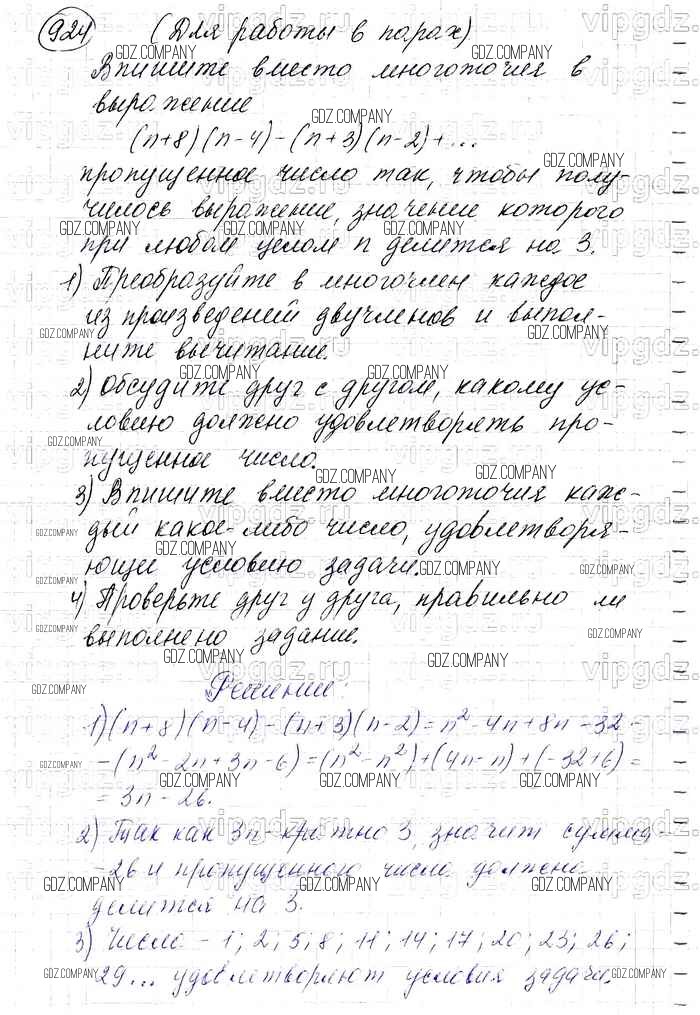 924 (Для работы в парах)
Впишите вместо многоточия в
выражение
(n+8)(n-4)-(n+3)(n-2)+...
пропущенное число так, чтобы полу-
чилось выражение, значение которого
при любом целом n делится на 3.
1) Преобразуйте в многочлен каждое
из произведений двучленов и выпол-
ните вычитание.
2) Обсудите друг с другом, какому ус-
ловию должно удовлетворять про-
пущенное число.
3) Впишите вместо многоточия каж-
дый какое-либо число, удовлетворя-
ющее условию задачи.
4) Проверьте друг у друга, правильно ли
выполнено задание.
Решение:
1) (n+8)(n-4)-(n+3)(n-2)=n²-4n+8n-32-
-(n²-2n+3n-6)=(n²-n²)+(4n-n)+(-32+6)=
=3n-26.
2) Так как 3n-кратно 3, значит сумма-
-26 и пропущенного число должна
делится на 3.
3) Число - 1; 2; 5; 8; 11; 14; 17; 20; 23; 26;
29... удовлетворяют условия задачи.
GDZ.COMPANY
vipgdz.ru